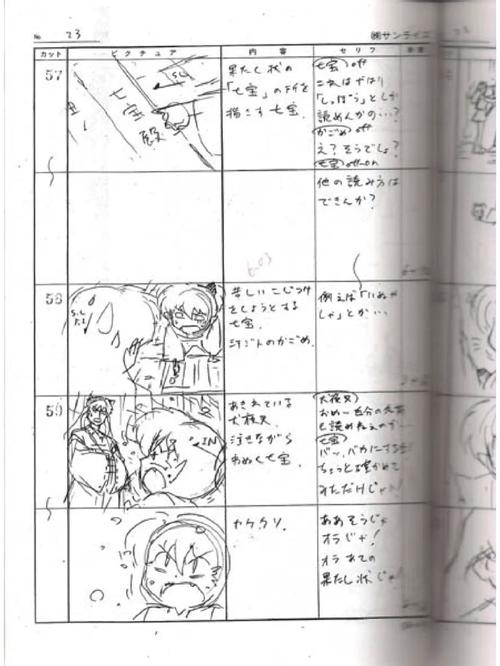 No 23
㈱サンライズ
カット
ピクチュア
内容
セリフ
57
S.L
七宝殿
果たし状の
「七宝」の所を
指こす七宝.
七宝 off
これはやはり
「しっぽう」としか
読めんかの…?
かごめ off
え? そうでしょ?
七宝 off→on
他の読み方は
できんか?
6-03
58
S.L
苦しいこじつけ
をしようとする
七宝.
汗ジトのかごめ.
例えば「いぬや
しゃ」とか…
59
IN
あきれている
犬夜叉.
汗せながら
わめく七宝.
犬夜叉
おめー自分の名前
も読めねえのか…
七宝
バ、バカにするな!
ちょっと確かめて
みただけじゃ!
ヤケクソ.
ああそうじゃ
オラじゃ!
オラあての
果たし状じゃ!